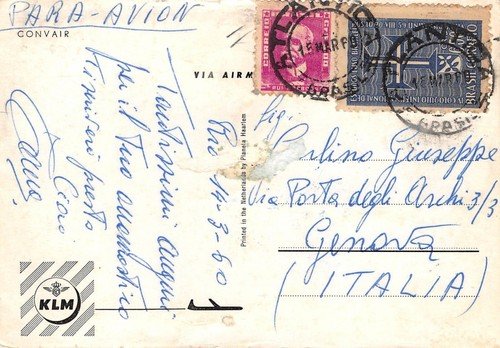 PARA-AVION
CONVAIR
VIA AIRM
Rio 14-3-60
Tantissimi auguri
per il tuo onomastico
Ti rivedrei presto
Ciao
Printed in the Netherlands by Planeta Haarlem
KLM
CORREIO
BRASIL CORREIO
Sig.
Orlino Giuseppe
Via Porta degli Archi 3/3
Genova
(ITALIA)